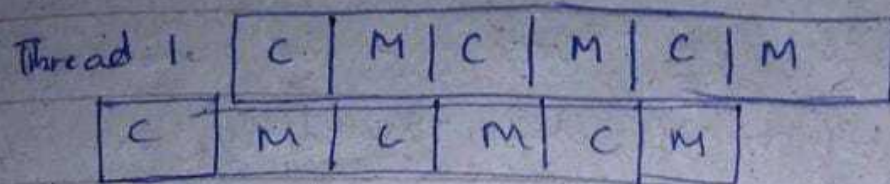 Thread 1. C M C M C M
C M C M C M